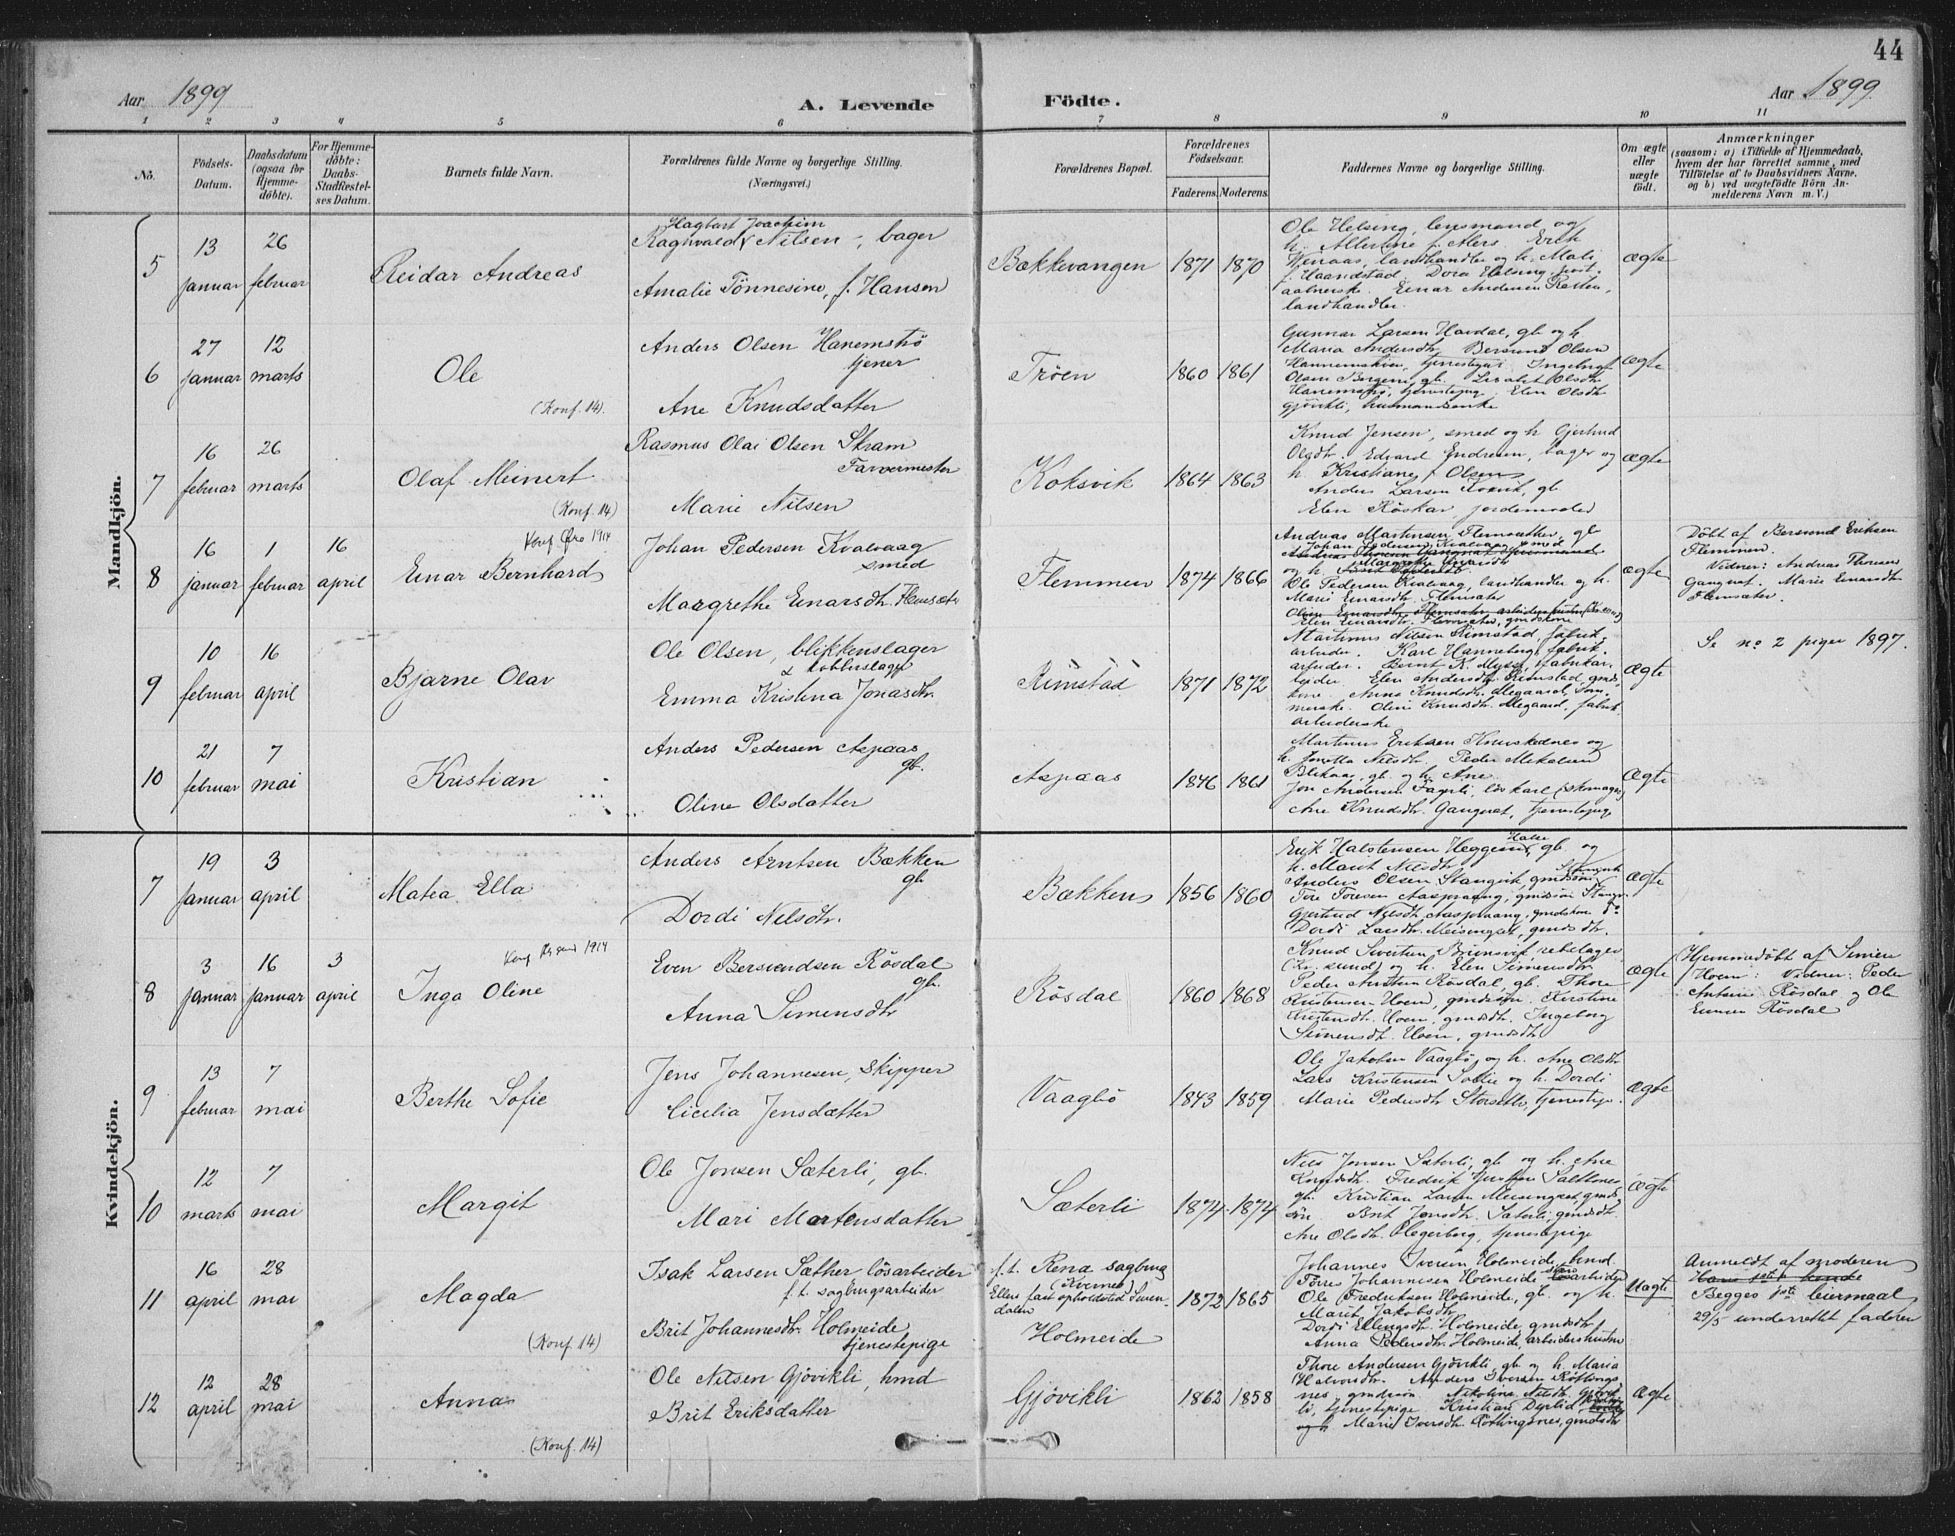 44
Aar 1899
A. Levende
Födte.
Aar 1899.
1 2 3 4 5 6 7 8 9 10 11
No.
Födsels-
Datum.
Daabsdatum
(ogsaa for
Hjemme-
döbte).
For Hjemme-
döbte:
Daabs-
Stadfæstel-
ses Datum.
Barnets fulde Navn.
Forældrenes fulde Navne og borgerlige Stilling.
(Næringsvei.)
Forældrenes Bopæl.
Forældrenes
Födselsaar.
Faderens. Moderens.
Faddernes Navne og borgerlige Stilling.
Om ægte
eller
uægte
födt.
Anmærkninger
(saasom: a) i Tilfælde af Hjemmedaab,
hvem der har forrettet samme, med
Tilföielse af to Daabsvidners Navne.
og b) ved uægtefödte Börn An-
melderens Navn m. V.)
Mandkjön.
5
13
januar
26
februar
Reidar Andreas
Hagbart Joachim
Ragnvald Nilsen, bager
Amalie Tönnesine, f. Hansen
Bækkevangen
1871 1870
Ole Helsing, lensmand og
landhandler og h. Mali
f. Haandstad. Dora Helsing, post-
landhandler.
Ægte
6
27
januar
12
marts
Ole
(Konf. 14).
Anders Olsen Hanemstrø
tjener
Ane Knudsdatter
Trøen
1860 1861
Gunnar Larsen Hardal, gb. og h.
Maria Andersdtr. Bersvend Olsen
Gjøvikli, husmandsenke
Ægte
7
16
februar
26
marts
Olaf Meinert
(Konf. 14)
Rasmus Olai Olsen Skram
Farvermester
Marie Nilsen
Koksvik
1864 1863
Knud Jensen, smed og h. Gjertrud
Olsdtr. Edvard Endresen, bager og
h. Kristiane f. Olsen
Anders Larsen Torvik, gb.
Elen Röskar, jordemoder
Ægte
8
16
januar
1
februar
16
april
Konf. 1914
Einar Bernhard
Johan Pedersen Kvalvaag
smed
Margrethe Einarsdtr. Flemsæter
Flemmen
1874 1866
Andreas Martinsen Flemsæter, gb.
Johan Pedersen Kvalvaag, smed
og h.
Ole Pedersen Kvalvaag, landhandler og h.
Marie Einarsdtr. Flemsæter
Elen Einarsdtr. Flemsæter, gmdskone
Ægte
Döbt af Bersvend Eriksen
Flemmen.
Vidner: Andreas Thoresen
Gangnat. Marie Einarsdtr.
Flemsæter.
9
10
februar
16
april
Bjarne Olav
Ole Olsen, blikkenslager
& kobberslager
Emma Kristina Jonasdtr.
Rimstad
1871 1872
Martinus Nilsen Rimstad, fabrik-
arbeider. Karl Hanneborg, fabrik-
arbeider. Bernt K. Myhre, fabrikar-
beider. Elen Andersdtr. Rimstad, gmds-
kone. Anna Knudsdtr. Megaard, Søm-
merske. Oline Knudsdtr. Megaard, fabrik-
arbeiderske
Ægte
Se no 2 piger 1897.
10
21
februar
7
mai
Kristian
Anders Pedersen Aspaas
gb.
Oline Olsdatter
Aspaas
1846 1861
Martinus Eriksen og
h. Jonetta Nilsdtr. Peder Mikalsen
gb. og h. Ane
Jon Andersen Fagerli, löskarl (skomager)
Ane Knudsdtr. Gangnat, tjenestepige
Ægte
Kvindekjön.
7
19
Januar
3
april
Matea Ella
Anders Arntsen Bækken
gb.
Dordi Nilsdtr.
Bækken
1856 1860
Erik Halstensen Heggem, gb. og
h. Marit Nilsdtr.
Anders Olsen Stangvik, gmdssön
Tore Toresen Aasprang, gmdssön
Gjertrud Nilsdtr. Aasprang, gmdskone
Dordi Larsdtr. Meisingset, gmdsdtr.
Ægte
8
3
januar
16
januar
3
april
Konf. 1914
Inga Oline
Even Bersvendsen Rösdal
gb.
Anna Simensdtr
Rösdal
1860 1868
Knud Sivertsen Brunsvik, rebslager
(Kr. sund) og h. Elen Simensdtr.
Peder Antonsen Rösdal, gb. Thore
Kristensen Hoem, gmdssön. Kirstine
Kristensdtr. Hoem, gmdsdtr. Ingeborg
Simensdtr. Hoem, gmdsdtr
Ægte
Hjemmedöbt af Simen
Hoem. Vidner: Peder
Antonsen Rösdal og Ole
Evensen Rösdal
9
13
februar
7
mai
Berthe Sofie
Jens Johannesen, skipper
Cicilia Jensdatter
Vaagbö
1843 1859
Ole Jakobsen Vaagbö, og h. Ane Olsdtr
Lars Kristensen og h. Dordi
Marie Pedersdtr Storsætli, tjenestepi.
Ægte
10
12
marts
7
mai
Margit
Ole Jonsen Sæterli, gb.
Mari Mortensdatter
Sæterli
1874 1874
Nils Jonsen Sæterli, gb. og h. Ane
Knudsdtr. Fredrik Saltnes
gb. Kristian Larsen Meisingset, gmds-
sön. Brit Jonsdtr. Sæterli, gmdsdtr.
Ane Olsdtr. Hegerberg, tjenestepige
Ægte
11
16
april
28
mai
Magda
(Konf. 14)
Isak Larsen Sæther lösarbeider
f. t. sagbrugsarbeider
Brit Johannesdtr. Holmeide
tjenestepige
f. t. Renæ sagbrug
(Kvernes)
Ellers fast opholdsted Suren-
dalen
Holmeide
1872 1865
Johannes Iversen Holmeide, hmd
Torres Johannesen Holmeide lösarbeider
Ole Fredriksen Holmeide, gb. og h.
Marit Jakobsdtr.
Dordi Ellingsdtr. Holmeide, gmdsdtr
Anna Pedersdtr. Holmeide, arbeidershustru
Uægte
Anmeldt af moderen
Begges 1ste leiermaal
29/5 underrettet faderen
12
12
april
28
mai
Anna
(Konf. 14)
Ole Nilsen Gjövikli, hmd
Brit Eriksdatter
Gjövikli
1862 1858
Thore Andersen Gjövikli, gb. og h. Maria
Halvorsdtr. Anders Iversen Röttings-
nes, gmdssön. Nikoline Nilsdtr. Gjövik-
li, tjenestepige. Kristian Dyrlid,
og h. Marie Iversdtr. Röttingsnes, gmdsdtr
Ægte